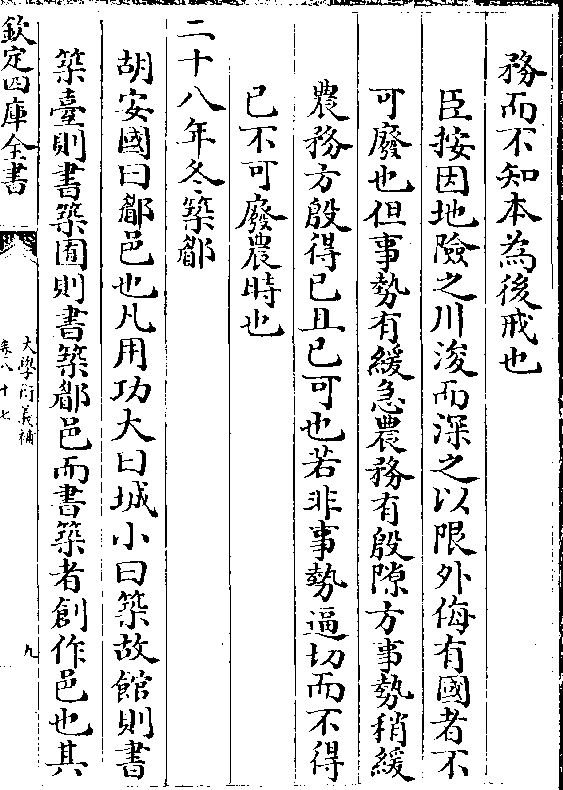 務而不知本為後戒也
臣按因地險之川浚而深之以限外侮有國者不
可廢也但事勢有緩急農務有殷隙方事勢稍緩
農務方殷得已且已可也若非事勢逼切而不得
已不可廢農時也
二十八年冬築郿
胡安國曰郿邑也凡用功大曰城小曰築故館則書
築臺則書築囿則書築郿邑而書築者創作邑也其
欽定四庫全書
大學衍義補
卷八十七
九